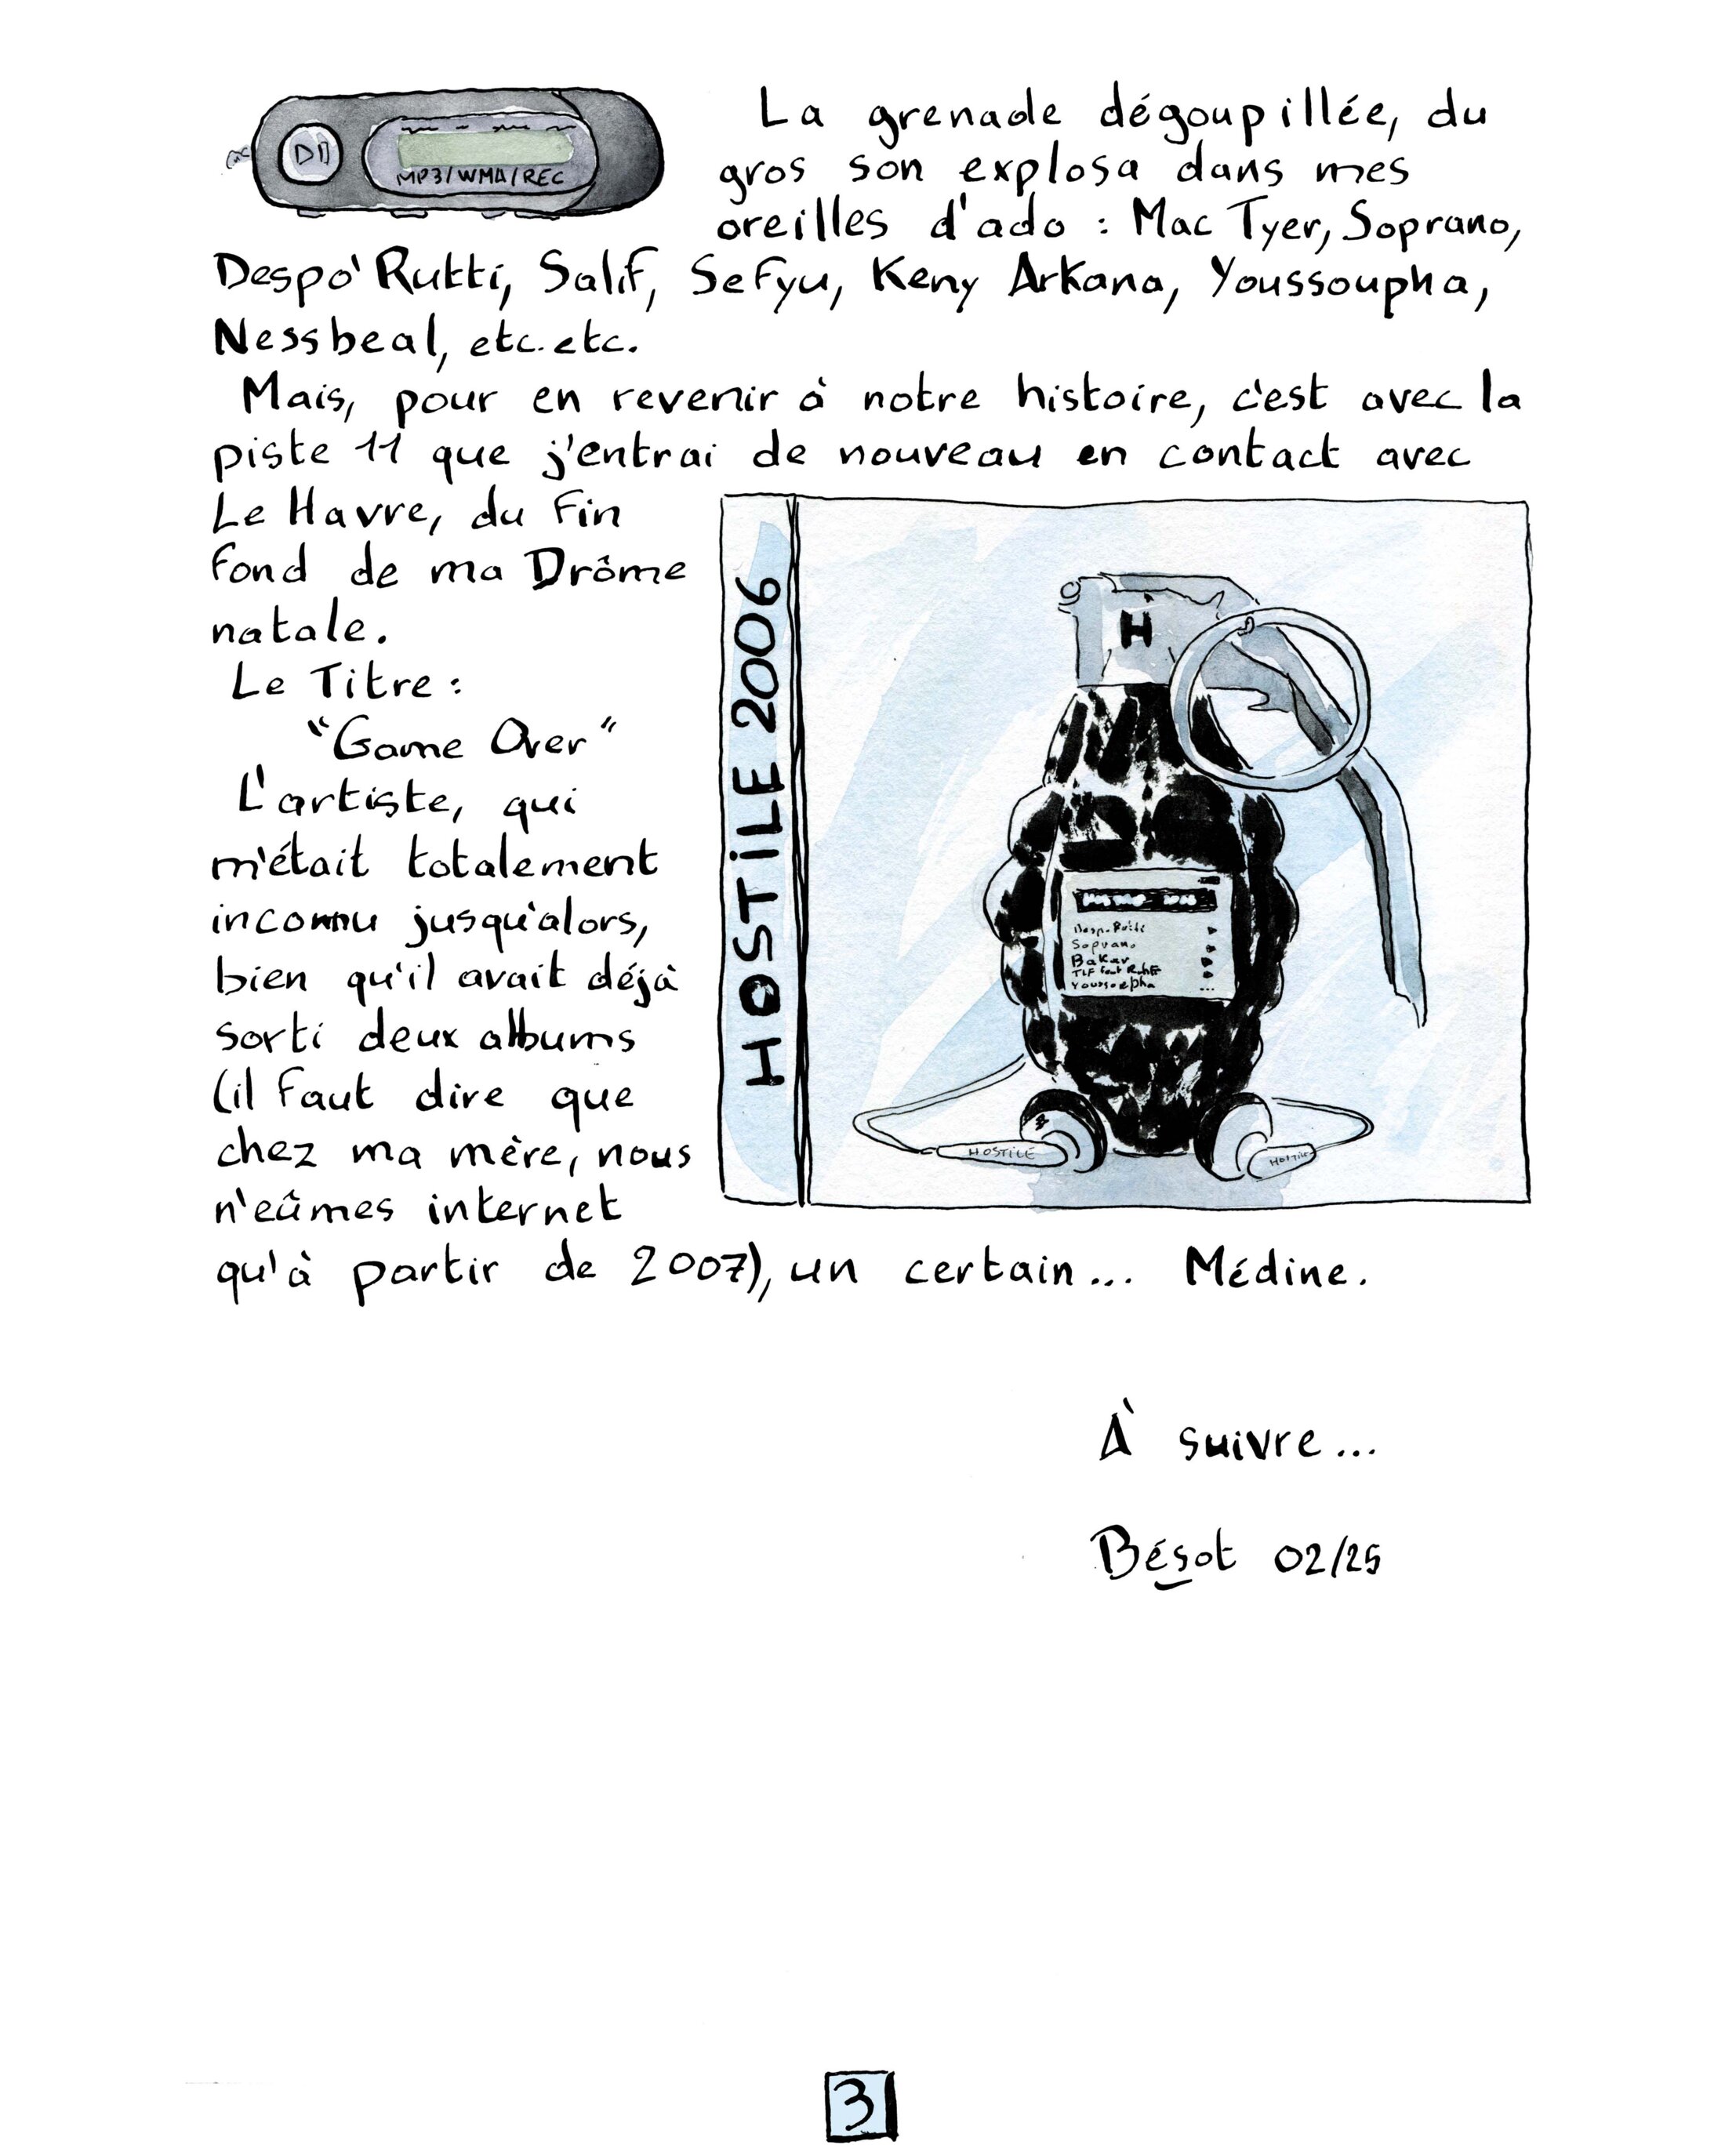 MP3/WMA/REC
La grenade dégoupillée, du
gros son explosa dans mes
oreilles d'ado : Mac Tyer, Soprano,
Despo' Rutti, Salif, Sefyu, Keny Arkana, Youssoupha,
Nessbeal, etc. etc.
Mais, pour en revenir à notre histoire, c'est avec la
piste 11 que j'entrai de nouveau en contact avec
Le Havre, du fin
fond de ma Drôme
natale.
Le Titre :
"Game Over"
L'artiste, qui
m'était totalement
inconnu jusqu'alors,
bien qu'il avait déjà
sorti deux albums
(il faut dire que
chez ma mère, nous
n'eûmes internet
qu'à partir de 2007), un certain... Médine.
HOSTILE 2006
H
Despo Rutti
Soprano
Bakar
TLF feat
Youssoupha
...
HOSTILE
HOSTILE
À suivre...
Bésot 02/25
3